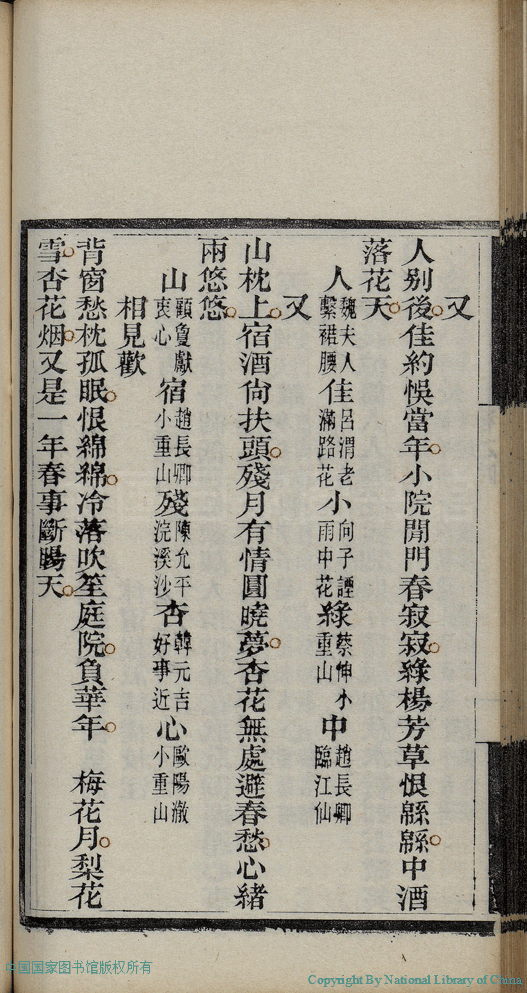 又
人别後佳約悞當年小院閒門春寂寂綠楊芳草恨緜緜中酒
落花天
人魏夫人繫裙腰佳呂渭老滿路花小向子諲雨中花綠蔡伸小重山中趙長卿臨江仙
又
山枕上宿酒尙扶頭殘月有情圓曉夢杏花無處避春愁心緒
雨悠悠
山顧敻獻衷心宿趙長卿小重山殘陳允平浣溪沙杏韓元吉好事近心歐陽澈小重山
相見歡
背窗愁枕孤眠恨綿綿冷落吹笙庭院負華年　梅花月梨花
雪杏花烟又是一年春事斷腸天
中国国家图书馆版权所有
Copyright By National Library of China